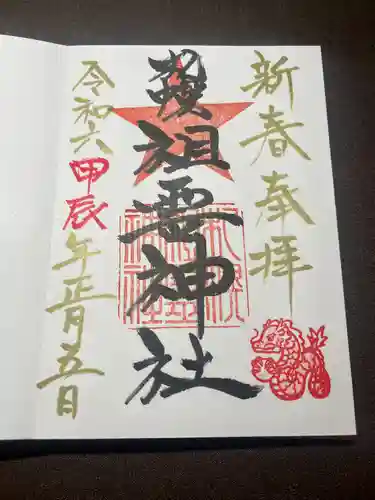 新春奉拝
札幌祖霊神社
令和六甲辰年正月五日